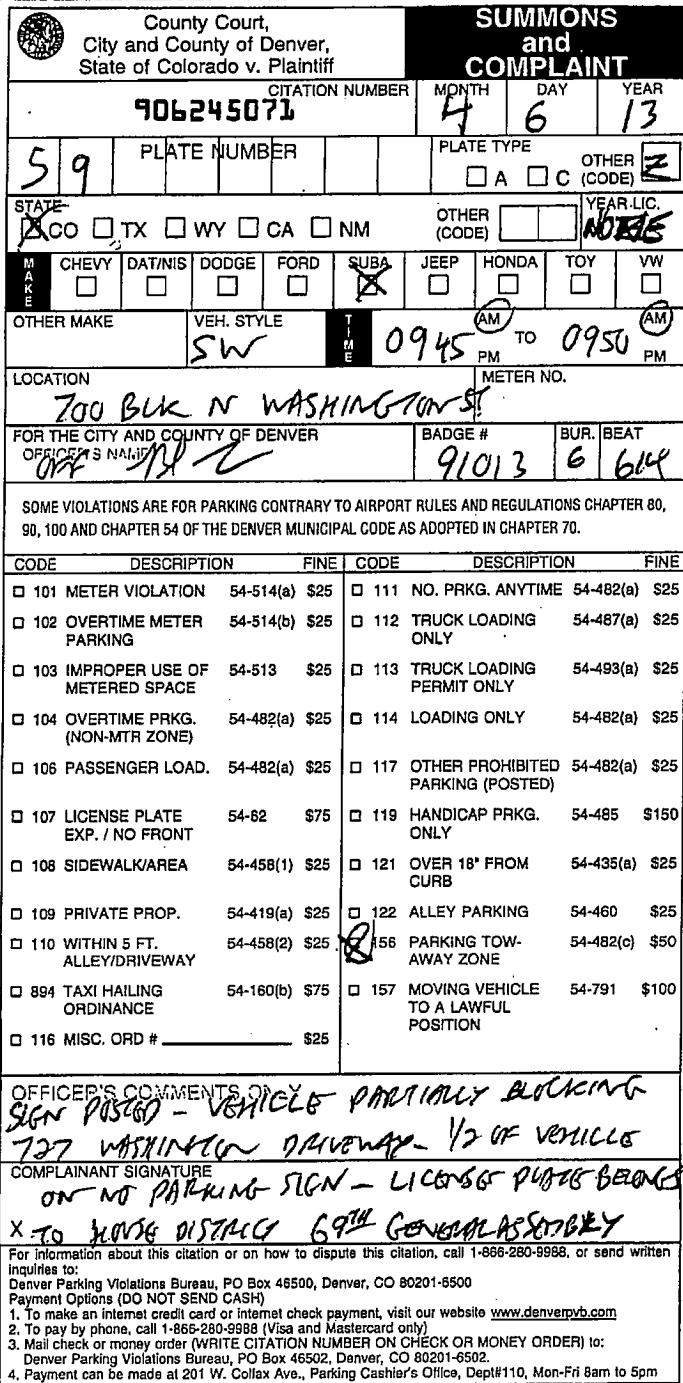 County Court,
City and County of Denver,
State of Colorado v. Plaintiff
SUMMONS
and
COMPLAINT
CITATION NUMBER
906245071
MONTH DAY YEAR
4 6 13
PLATE NUMBER
5 9
PLATE TYPE
A C OTHER (CODE) Z
STATE
CO TX WY CA NM
OTHER (CODE)
YEAR LIC.
MAKE
CHEVY DAT/NIS DODGE FORD SUBA JEEP HONDA TOY VW
OTHER MAKE
VEH. STYLE
SW
TIME
0945 AM PM TO 0950 AM PM
LOCATION
700 BLK N WASHINGTON ST
METER NO.
FOR THE CITY AND COUNTY OF DENVER
OFFICER'S NAME
BADGE # BUR. BEAT
91013 6 614
SOME VIOLATIONS ARE FOR PARKING CONTRARY TO AIRPORT RULES AND REGULATIONS CHAPTER 80,
90, 100 AND CHAPTER 54 OF THE DENVER MUNICIPAL CODE AS ADOPTED IN CHAPTER 70.
CODE DESCRIPTION FINE
101 METER VIOLATION 54-514(a) $25
102 OVERTIME METER 54-514(b) $25
PARKING
103 IMPROPER USE OF 54-513 $25
METERED SPACE
104 OVERTIME PRKG. 54-482(a) $25
(NON-MTR ZONE)
106 PASSENGER LOAD. 54-482(a) $25
107 LICENSE PLATE 54-62 $75
EXP. / NO FRONT
108 SIDEWALK/AREA 54-458(1) $25
109 PRIVATE PROP. 54-419(a) $25
110 WITHIN 5 FT. 54-458(2) $25
ALLEY/DRIVEWAY
894 TAXI HAILING 54-160(b) $75
ORDINANCE
116 MISC. ORD # $25
CODE DESCRIPTION FINE
111 NO. PRKG. ANYTIME 54-482(a) $25
112 TRUCK LOADING 54-487(a) $25
ONLY
113 TRUCK LOADING 54-493(a) $25
PERMIT ONLY
114 LOADING ONLY 54-482(a) $25
117 OTHER PROHIBITED 54-482(a) $25
PARKING (POSTED)
119 HANDICAP PRKG. 54-485 $150
ONLY
121 OVER 18" FROM 54-435(a) $25
CURB
122 ALLEY PARKING 54-460 $25
156 PARKING TOW- 54-482(c) $50
AWAY ZONE
157 MOVING VEHICLE 54-791 $100
TO A LAWFUL
POSITION
OFFICER'S COMMENTS ONLY
SIGN POSTED - VEHICLE PARTIALLY BLOCKING
727 WASHINTON DRIVEWAY - 1/2 OF VEHICLE
COMPLAINANT SIGNATURE
ON NO PARKING SIGN - LICENSE PLATE BELONGS
X TO HOUSE DISTRICT 69TH GENERAL ASSEMBLY
For information about this citation or on how to dispute this citation, call 1-866-280-9988, or send written
inquiries to:
Denver Parking Violations Bureau, PO Box 46500, Denver, CO 80201-6500
Payment Options (DO NOT SEND CASH)
1. To make an internet credit card or internet check payment, visit our website www.denverpvb.com
2. To pay by phone, call 1-866-280-9988 (Visa and Mastercard only)
3. Mail check or money order (WRITE CITATION NUMBER ON CHECK OR MONEY ORDER) to:
Denver Parking Violations Bureau, PO Box 46502, Denver, CO 80201-6502.
4. Payment can be made at 201 W. Colfax Ave., Parking Cashier's Office, Dept#110, Mon-Fri 8am to 5pm